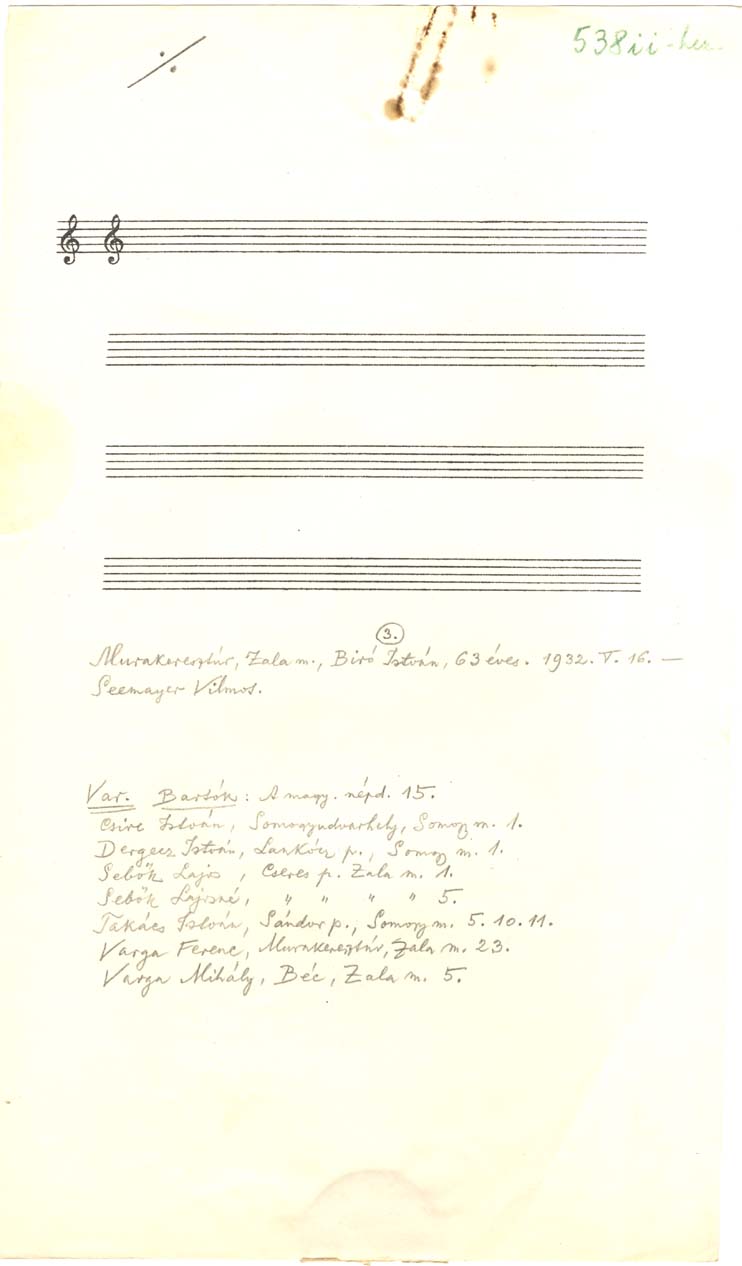 538ii
3.
Murakeresztúr, Zala m., Biró István, 63 éves. 1932. V. 16. —
Seemayer Vilmos.
Var. Bartók: A magy. népd. 15.
Csire István, Somogyudvarhely, Somogy m. 1.
Dergecz István, Lankócz p., Somogy m. 1.
Sebők Lajos, Cseres p. Zala m. 1.
Sebők Lajosné, " " " " 5.
Takács István, Sándor p., Somogy m. 5. 10. 11.
Varga Ferenc, Murakeresztúr, Zala m. 23.
Varga Mihály, Béc, Zala m. 5.